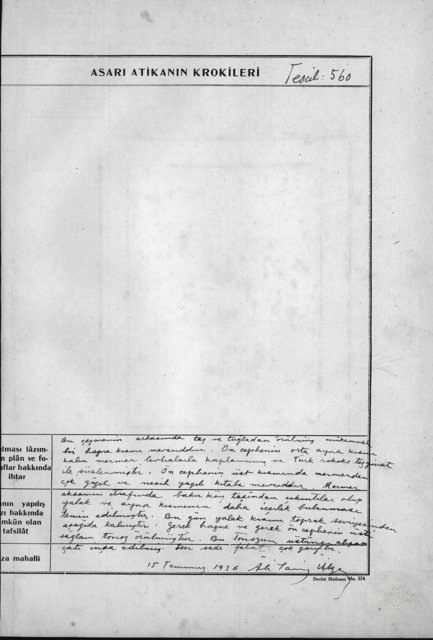 ASARI ATİKANIN KROKİLERİ Tescil: 560
ılması lâzım-
n plân ve fo-
aflar hakkında
ihtar
Bu çeşmenin arkasında taş ve tuğladan örülmüş mükemmel
bir hazne kısmı mevcuddur. Ön cephenin orta ayna kısmı
kalın mermer levhalarla kaplanmış ve Türk rokoko tezyinat
ile süslenmiştir. Ön cephenin üst kısmında mermerden
çok güzel ve nesih yazılı kitabe mevcuddur. Mermer
nın yapılış
zı hakkında
mkün olan
tafsilât
aksamın etrafında bakır köy taşından çıkıntılar olup
yalak ve ayna kısmının daha içerlek bulunması
temin edilmiştir. Bu gün yalak kısmı toprak seviyesinden
aşağıda kalmıştır. Gerek hazne ve gerek ön cephenin üstü
sağlam tonoz örülmüştür. Bu tonozun üstüne
çatı inşa edilmiş. sade fakat çok
za mahalli
15 Temmuz 1936 Ali
Devlet Matbaası 324